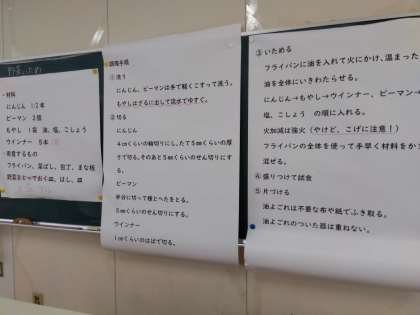 野菜いため
・材料
にんじん 1/2本
ピーマン 2個
もやし 1袋 油、塩、こしょう
ウインナー 5本
・用意するもの
フライパン、菜ばし、包丁、まな板
野菜をとっておく皿、はし、皿
調理手順
①洗う
にんじん、ピーマンは手で軽くこすって洗う。
もやしはざるに出して流水でゆすぐ。
②切る
にんじん
4cmくらいの輪切りにし、たて5mmくらいの厚
さで切る。そのあと5mmくらいのせん切りにす
る。
ピーマン
半分に切って種とへたをとる。
5mmくらいのせん切りにする。
ウインナー
1cmくらいのはばで切る。
③いためる
フライパンに油を入れて火にかけ、温まった
油を全体にいきわたらせる。
にんじん→もやし→ウインナー、ピーマン→
塩、こしょう の順に入れる。
火加減は強火(やけど、こげに注意!)
フライパンの全体を使って手早く材料をか
混ぜる。
④盛りつけて試食
⑤片づける
油よごれは不要な布や紙でふき取る。
油よごれのついた器は重ねない。